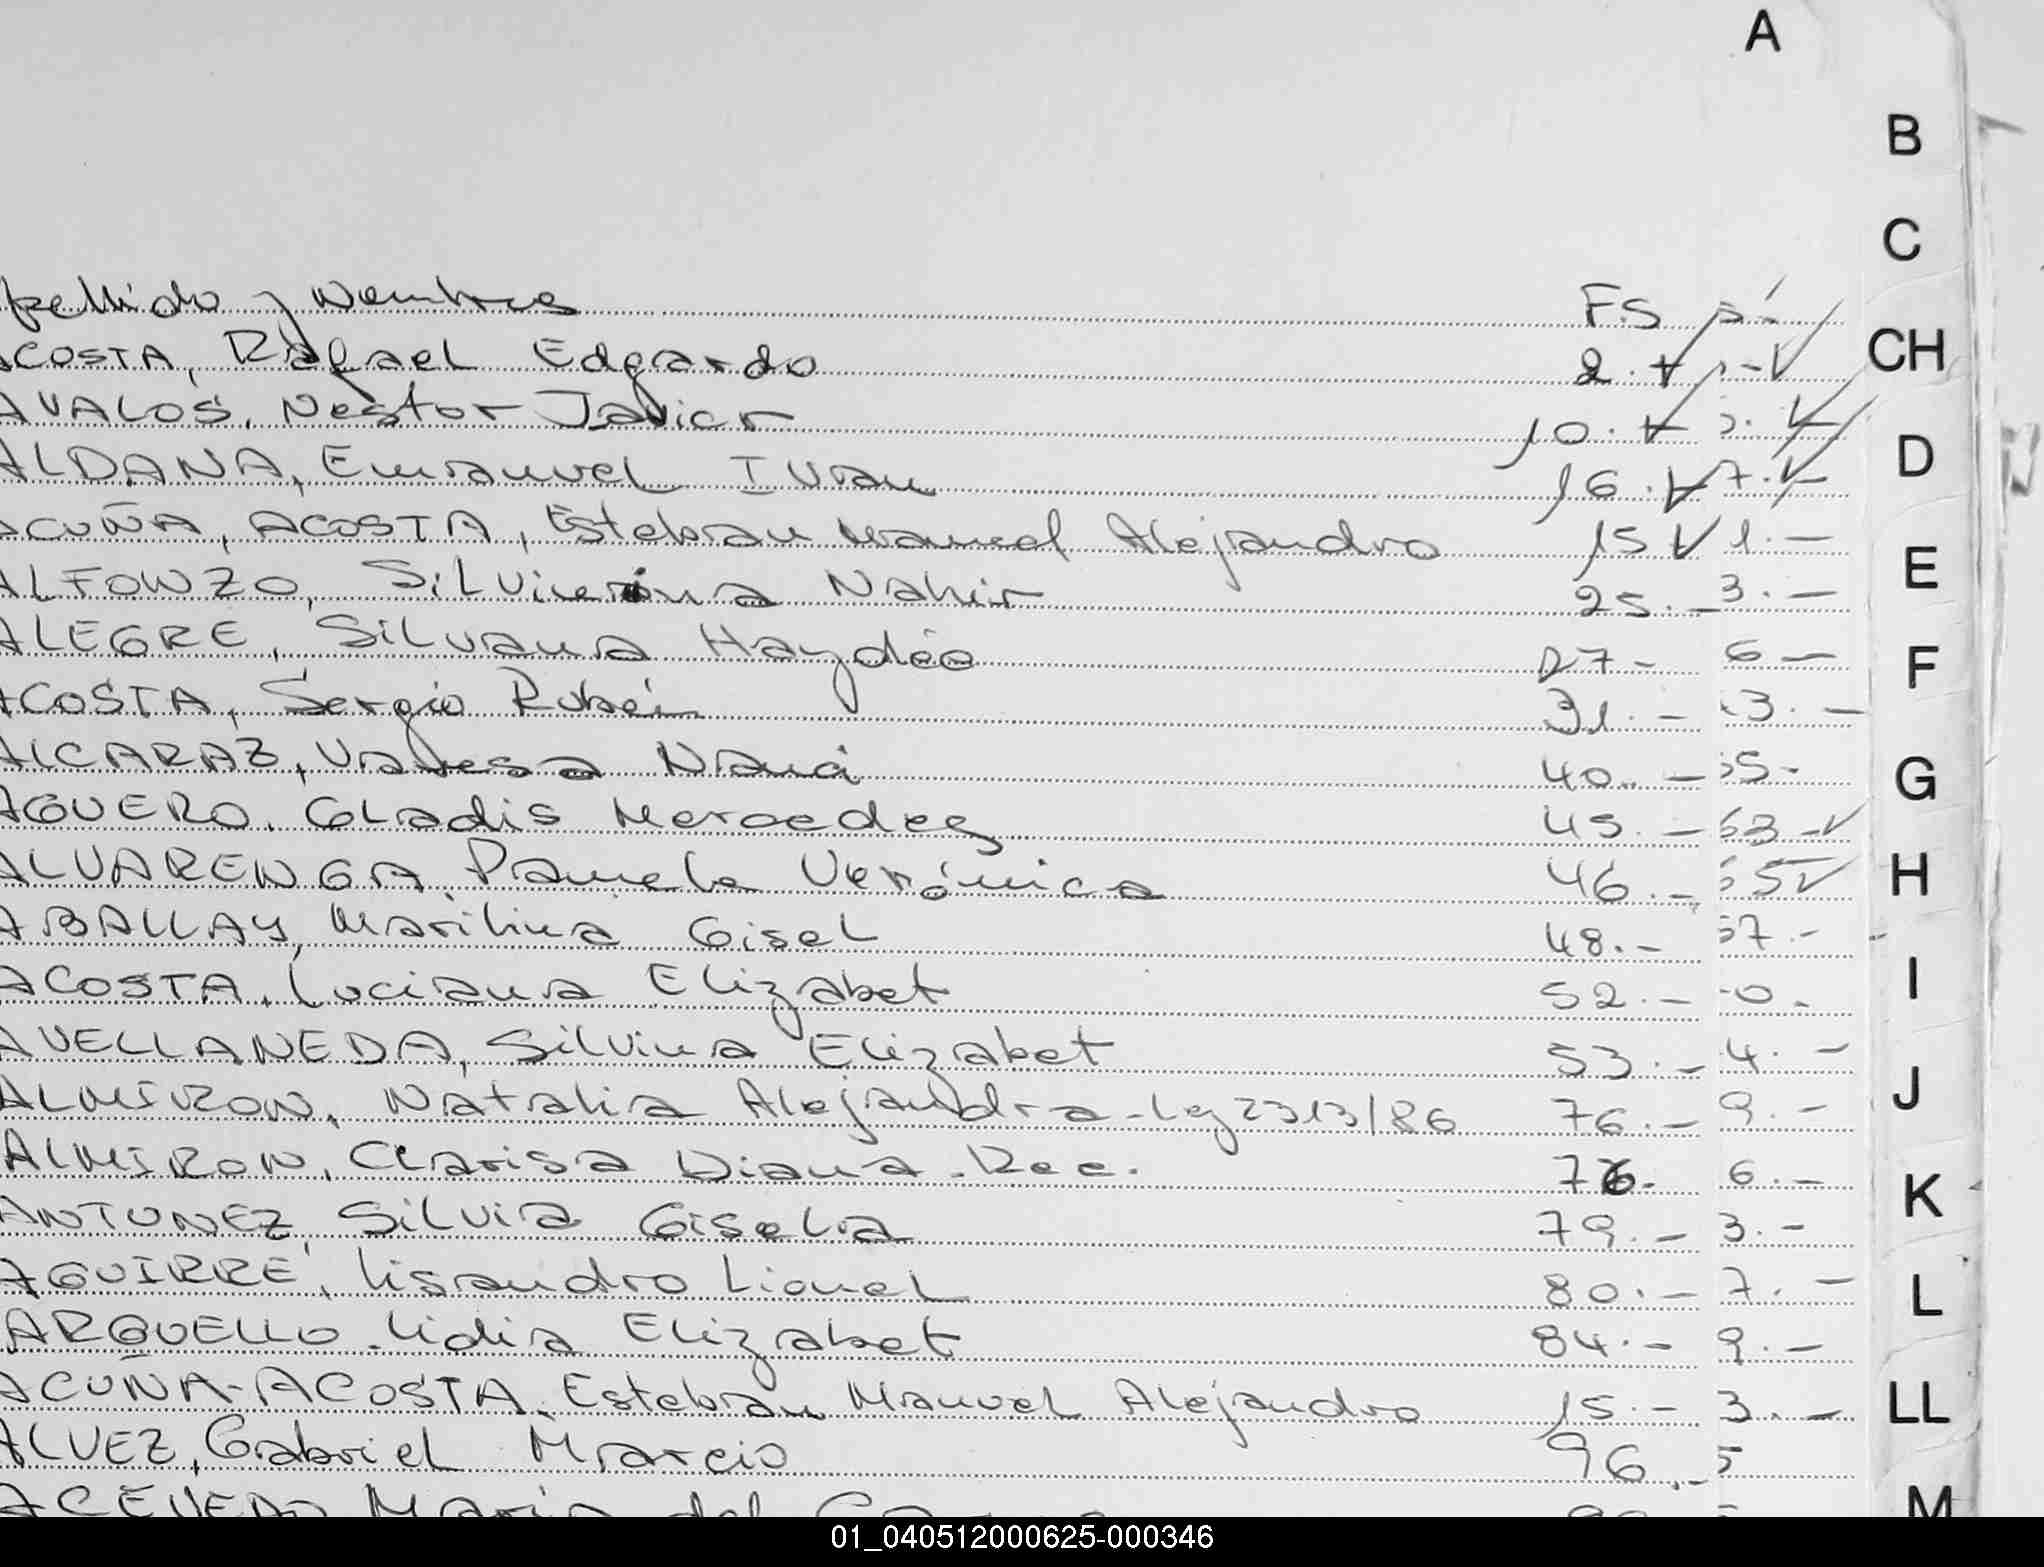 A
B
C
CH
D
E
F
G
H
I
J
K
L
LL
M
pellido y Nombres FS
COSTA, Rafael Edgardo 2.
AVALOS, Nestor Javier 10.
ALDANA, Emanuel Ivan 16. 7.-
ACUÑA, ACOSTA, Esteban Manuel Alejandro 15 1.-
ALFONZO, Nahir 25.- 3.-
ALEGRE, Silvana Haydée 27- 6-
ACOSTA, Sergio Rubén 31.- 3.-
ALCARAZ, Vanesa Nanci 40.- 5-
AGUERO, Gladis Mercedes 45.- 63-
ALVARENGA, Pamela Verónica 46.- 5
ABALLAY, Marilina Gisel 48.- 57.-
ACOSTA, Luciana Elizabet 52.- 0.
AVELLANEDA, Silvina Elizabet 53.- 4.-
ALMIRON, Natalia Alejandra-Lg 2313/86 76.- 9.-
ALMIRON, Clarisa Diana.Rec. 76- 6.-
ANTUNEZ, Silvia Gisela 79.- 3.-
AGUIRRE, Lisandro Lionel 80.- 7.-
ARGUELLO. Lidia Elizabet 84.- 9.-
ACUÑA-ACOSTA, Esteban Manuel Alejandro 15.- 3.-
ALVEZ, Gabriel Marcio 96.- 5
ACEVEDO Maria del
01_040512000625-000346